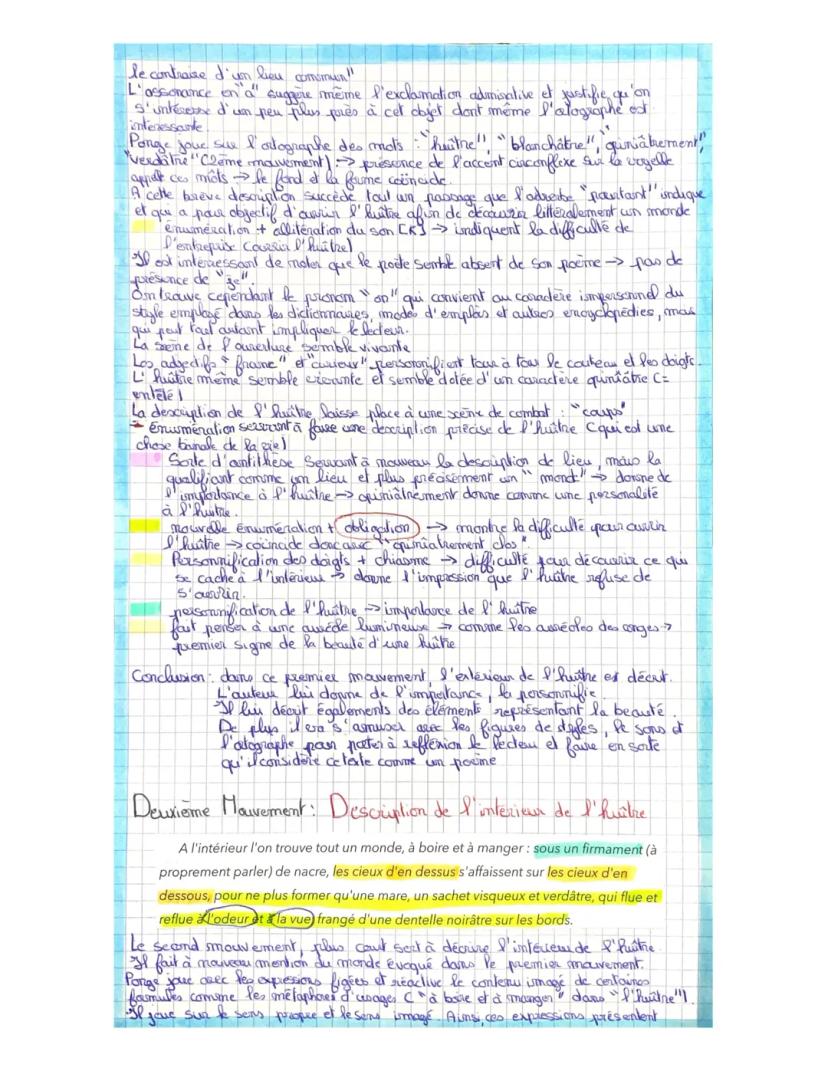 le contraire d'un lieu commun"
L'assonance en "a" suggère même l'exclamation admirative et justifie qu'on
s'intéresse d'un peu plus près à cet objet dont même l'otographe est
intéressante.
Ponge joue sur l'otographe des mots : "huître", "blanchâtre", opiniâtrement",
"verdâtre" (2ème mouvement) → présence de l'accent circonflexe sur la voyelle
appelle ces mots → le fond et la forme coïncide.
A cette brève description succède tout un passage que l'adverbe "pourtant" indique
et qui a pour objectif d'ouvrir l'huître afin de découvrir littéralement un monde
énumération + allitération du son [R] → indiquent la difficulté de
l'entreprise (ouvrir l'huître)
Il est interessant de noter que le poète semble absent de son poème → pas de
présence de "je".
On trouve cependant le pronom "on" qui convient au caractère impersonnel du
style employé dans les dictionnaires, modes d'emplois et autres encyclopédies, mais
qui peut tout autant impliquer le lecteur.
La scène de l'ouverture semble vivante
Les adjectifs "franc" et "curieux" personnifient tour à tour le couteau et les doigts.
L'huître même semble vivante et semble dotée d'un caractère opiniâtre (=
entêté)
La description de l'huître laisse place à une scène de combat : "coups"
Enumération servant à faire une description précise de l'huître (qui est une
chose banale de la vie)
Sorte d'antithèse servant à nouveau la description de lieu, mais la
qualifiant comme un lieu et plus précisement un "monde" → donne de
l'importance à l'huître → opiniâtrement donne comme une personalité
à l'huître.
nouvelle énumération + obligation → montre la difficulté pour ouvrir
l'huître → coïncide donc avec "opiniâtrement clos"
Personnification des doigts + chiasme → difficulté pour découvrir ce qui
se cache à l'intérieur → donne l'impression que l'huître refuse de
s'ouvrir.
personnification de l'huître → importance de l'huître
fait penser à une auréole lumineuse → comme les auréoles des anges →
premier signe de la beauté d'une huître
Conclusion : dans ce premier mouvement, l'extérieur de l'huître est décrit.
L'auteur lui donne de l'importance, la personnifie.
Il lui décrit égalements des éléments représentant la beauté.
De plus il va s'amuser avec les figures de styles, le sons et
l'otographe pour porter à reflexion le lecteur et faire en sorte
qu'il considère ce texte comme un poème
Deuxième Mouvement : Description de l'intérieur de l'huître
A l'intérieur l'on trouve tout un monde, à boire et à manger : sous un firmament (à
proprement parler) de nacre, les cieux d'en dessus s'affaissent sur les cieux d'en
dessous, pour ne plus former qu'une mare, un sachet visqueux et verdâtre, qui flue et
reflue à l'odeur et à la vue, frangé d'une dentelle noirâtre sur les bords.
Le second mouvement, plus court sert à décrire l'intérieur de l'huître.
Il fait à nouveau mention du monde évoqué dans le premier mouvement.
Ponge joue avec les expressions figées et réactive le contenu imagé de certaines
formules comme les métaphores d'usages ("à boire et à manger" dans "l'huître").
Il joue sur le sens propre et le sens imagé. Ainsi, ces expressions présentent